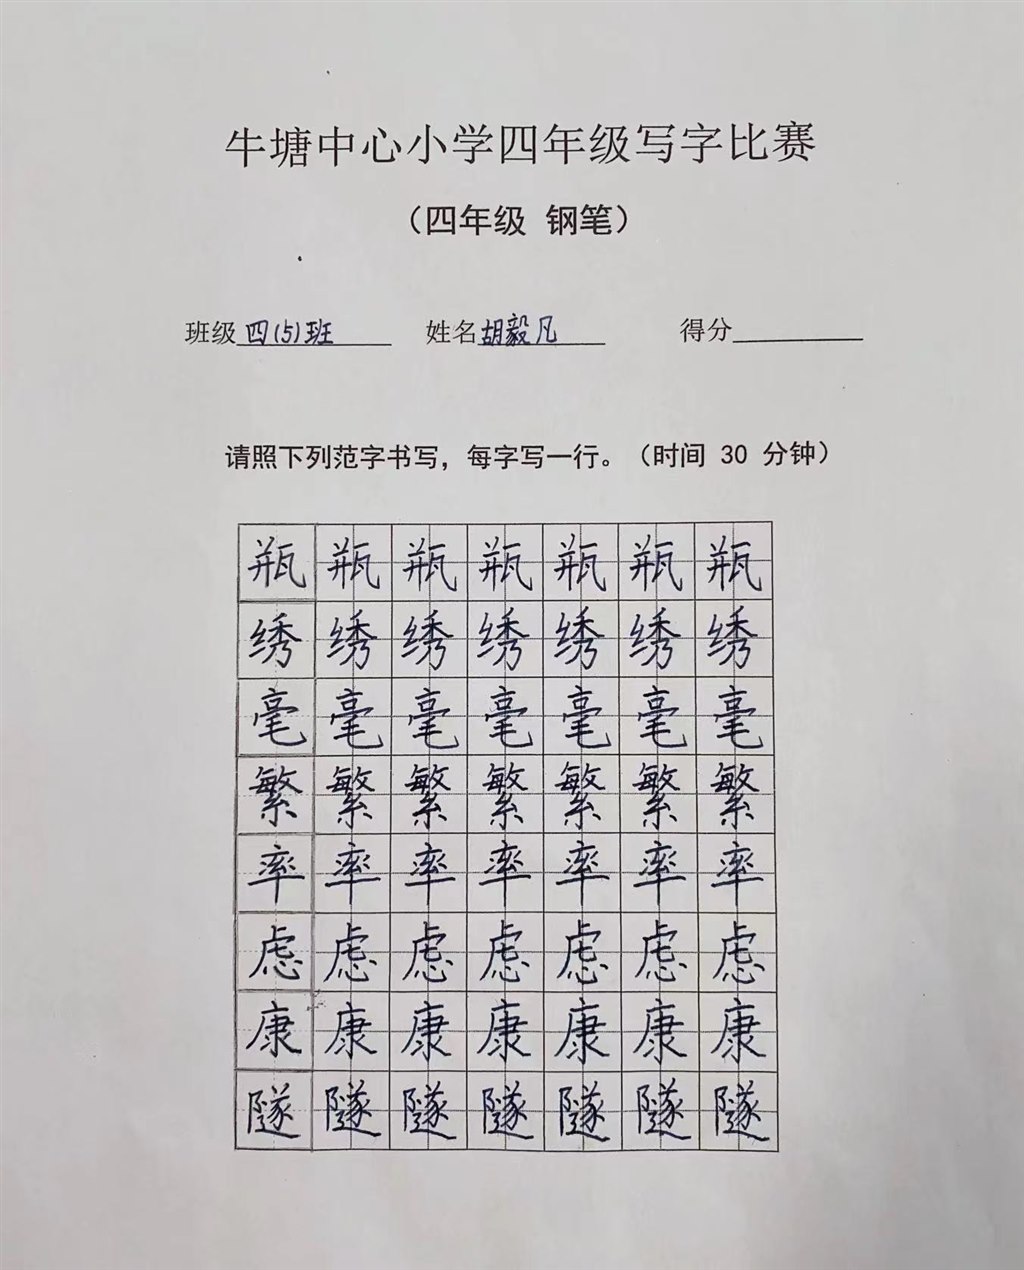 牛塘中心小学四年级写字比赛
（四年级 钢笔）
班级 四(5)班 姓名 胡毅凡 得分
请照下列范字书写，每字写一行。（时间 30 分钟）
瓶 瓶 瓶 瓶 瓶 瓶 瓶
绣 绣 绣 绣 绣 绣 绣
毫 毫 毫 毫 毫 毫 毫
繁 繁 繁 繁 繁 繁 繁
率 率 率 率 率 率 率
虑 虑 虑 虑 虑 虑 虑
康 康 康 康 康 康 康
隧 隧 隧 隧 隧 隧 隧